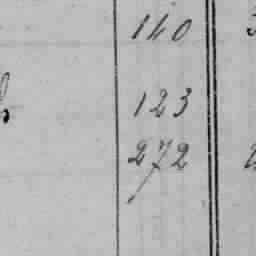 140
123
272